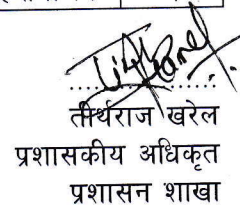 तीर्थराज खरेल
प्रशासकीय अधिकृत
प्रशासन शाखा